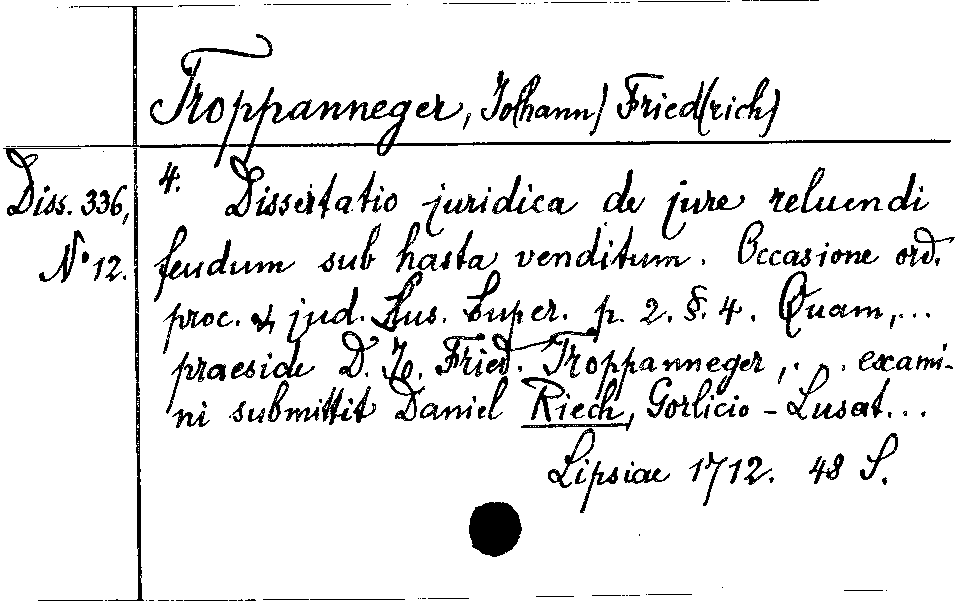 Troppanneger, Jo(hann) Fried(rich)
Diss. 336,
No 12.
4. Dissertatio juridica de jure reluendi
feudum sub hasta venditum. Occasione ord.
proc. & jud. Lus. Super. p. 2. §. 4. Quam,...
praeside D. Jo. Fried. Troppanneger,... exami-
ni submittit Daniel Riech, Gorlicio-Lusat...
Lipsiae 1712. 48 S.